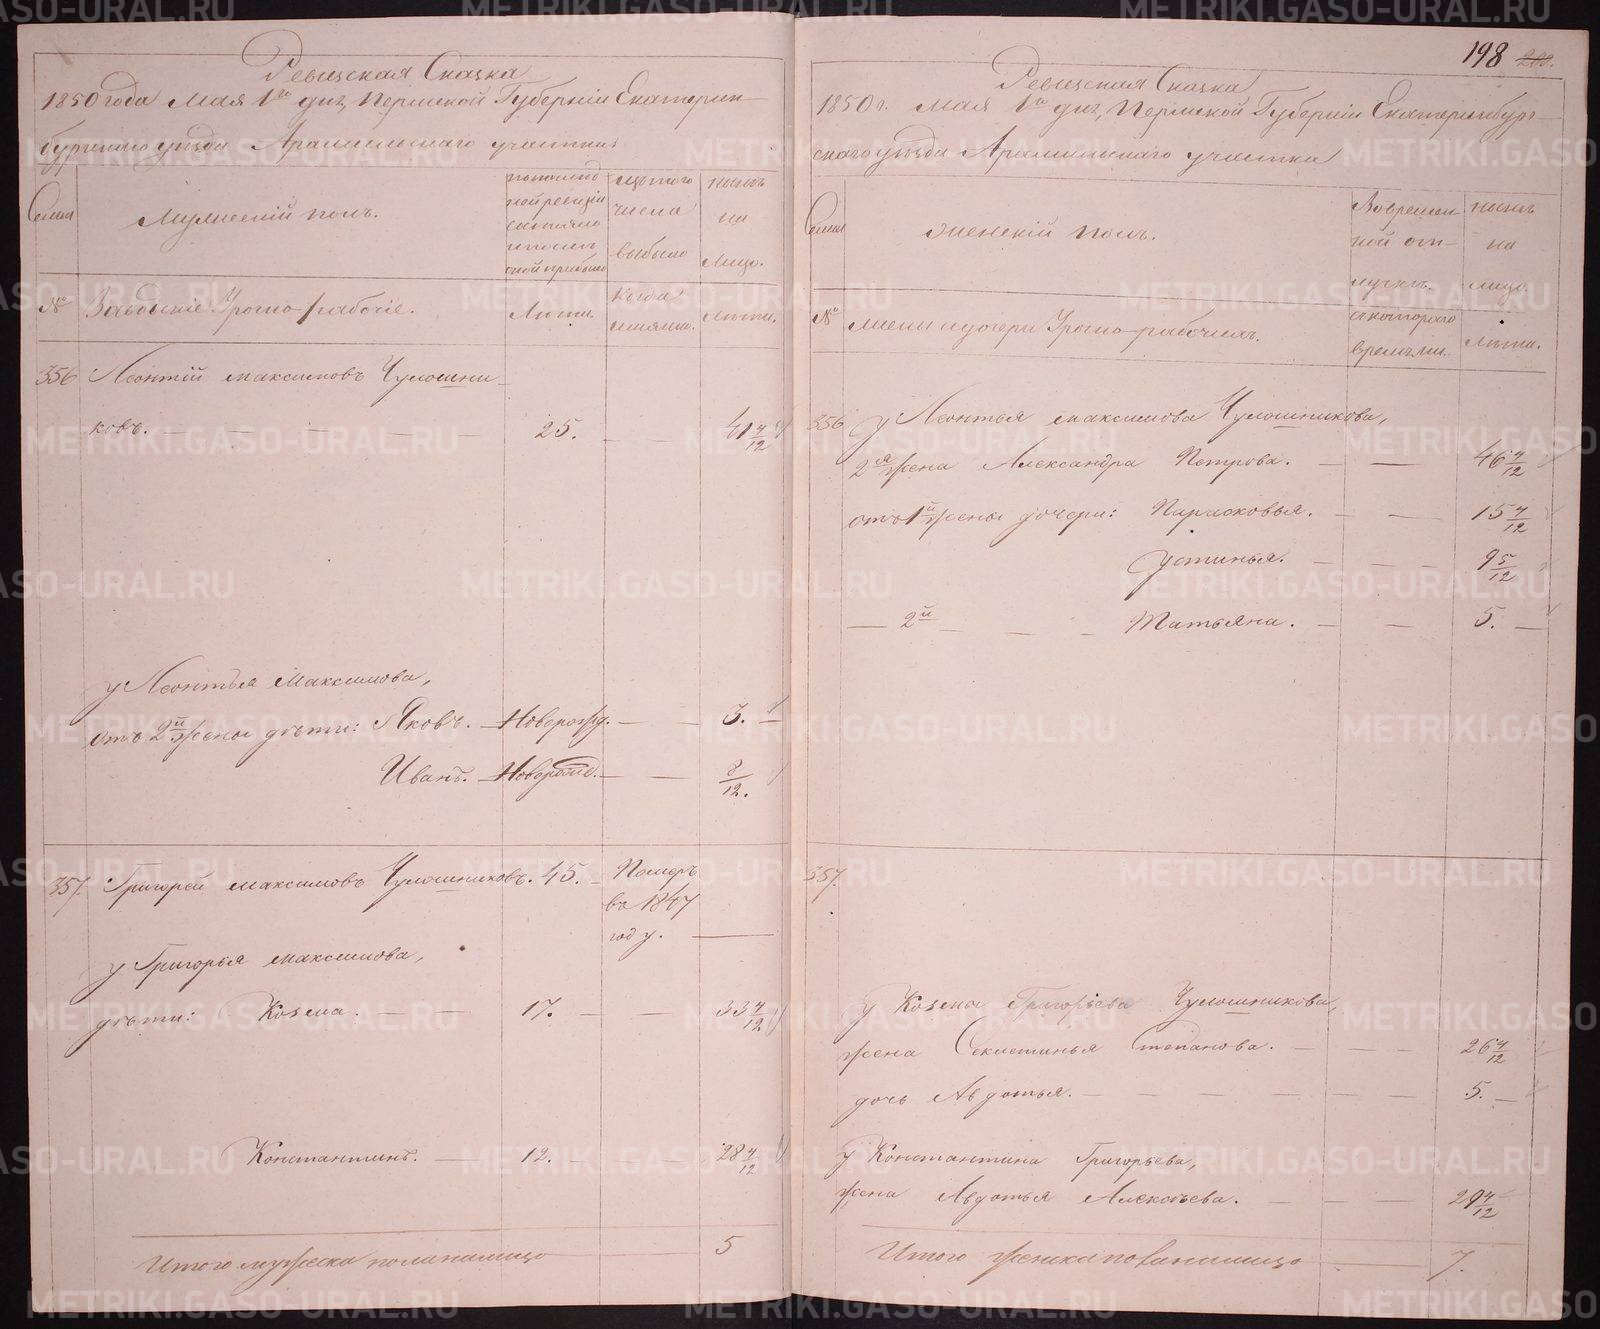 Ревизская Сказка
1850 года Мая 1го дня, Пермской Губернии Екатерин-
бургскаго уезда Арамильскаго участка
Семьи
Мужескій полъ.
по последней ревизіи состояло и после оной прибыло
изъ того числа выбыло
ныне на лицо.
№
Заводскіе Урочно-рабочіе.
Лета.
когда именно.
лета.
356 Леонтій Максимовъ Чумошни-
ковъ. 25. 41 4/12
у Леонтья Максимова,
отъ 2й жены дети: Яковъ. Новорожд. 3.
Иванъ. Новорожд. 8/12.
357. Григорей Максимовъ Чумошниковъ. 45. Померъ
въ 1847
году.
у Григорья Максимова,
дети: Козма. 17. 33 4/12
Константинъ. 12. 28 4/12
Итого мужеска пола на лицо 5
198 200.
Ревизская Сказка
1850 г. Мая 1го дня, Пермской Губерніи Екатеринбург-
скаго уезда Арамильскаго участка
Семьи
Женскій полъ.
Во временной отлучке.
ныне на лицо.
№
жены и дочери Урочно-рабочихъ.
съ котораго времени.
Лета.
356 у Леонтья Максимова Чумошникова,
2я жена Александра Петрова. 46 4/12
отъ 1й жены дочери: Парасковья. 15 4/12
Устинья. 9 5/12
2й Татьяна. 5.
357.
у Козмы Григорьева Чумошникова,
жена Секлетинья Степанова. 26 4/12
дочь Авдотья. 5.
у Константина Григорьева,
жена Авдотья Алексеева. 29 4/12
Итого женска пола на лицо 7.
METRIKI.GASO-URAL.RU